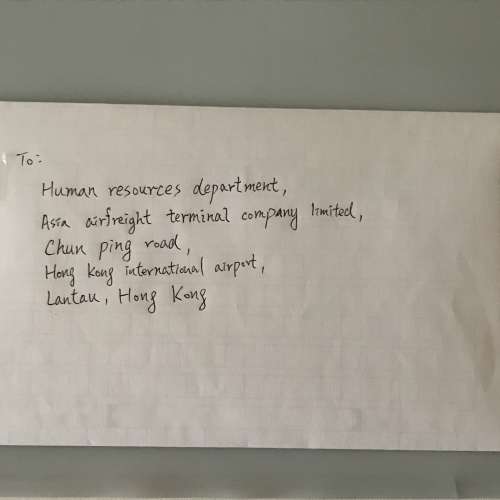 To:
Human resources department,
Asia airfreight terminal company limited,
Chun ping road,
Hong Kong international airport,
Lantau, Hong Kong